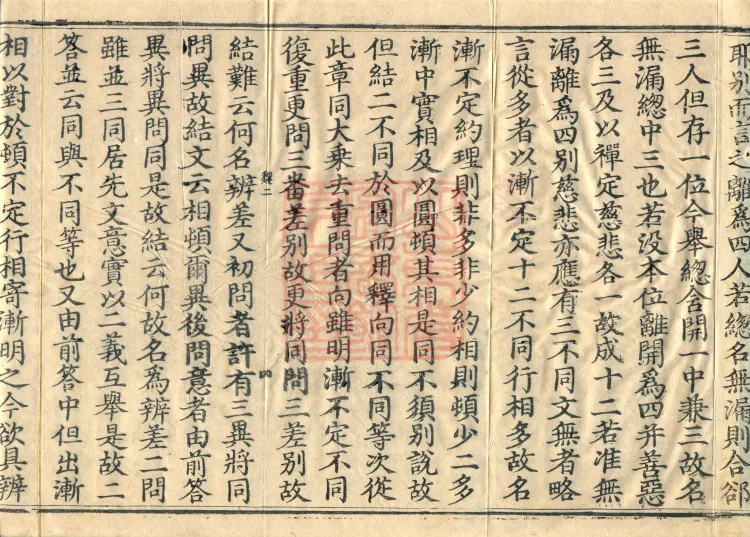 耶別而言之離為四人若總名無漏則合郤
三人但存一位今舉總含開一中兼三故名
無漏緫中三也若没本位離開為四并善惡
各三及以禪定慈悲各一故成十二若准無
漏離為四別慈悲亦應有三不同文無者略
言從多者以漸不定十二不同行相多故名
漸不定約理則非多非少約相則頓少二多
漸中實相及以圓頓其相是同不須別說故
但結二不同於圓而用釋向同不同等次從
此章同大乗去重問者向雖明漸不定不同
復重更問三番差別故更將同問三差別故
結難云何名辨差又初問者許有三異將同
問異故結文云相頓爾異後問意者由前答
異將異問同是故結云何故名為辨差二問
雖並三同居先文意實以二義互舉是故二
答並云同與不同等也又由前答中但出漸
相以對於頓不定行相寄漸明之今欲具辨